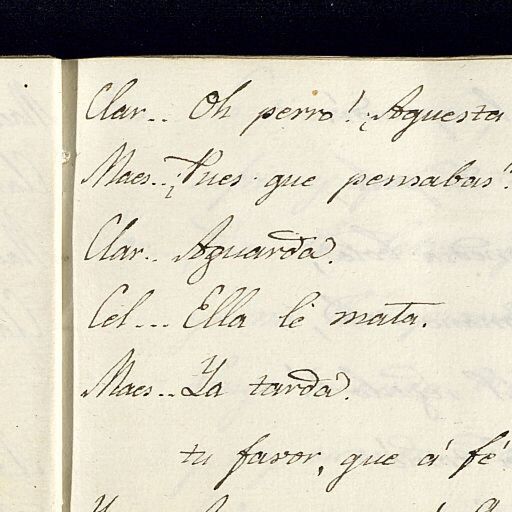 Clar.. Oh perro! ¿Aguesta
Maes.. ¿Pues que pensabas?
Clar.. Aguarda.
Cel... Ella le mata.
Maes.. Ya tarda.
tu favor, que á fé